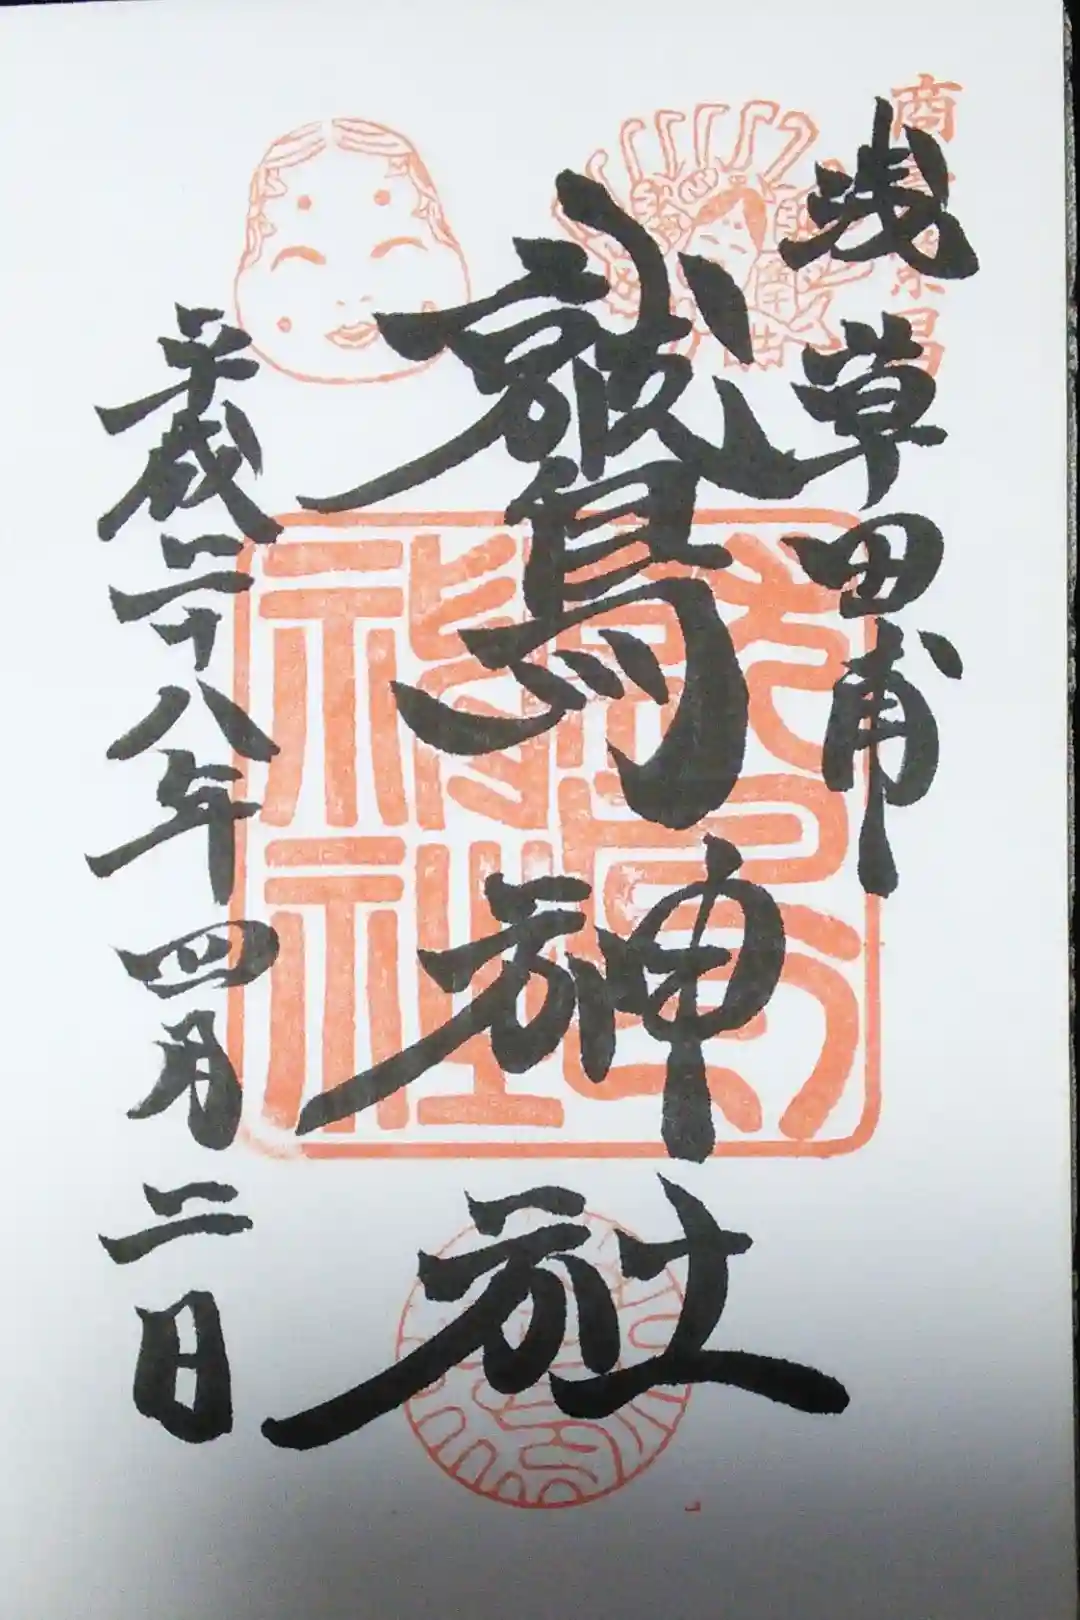 商売繁昌
浅草田甫
鷲神社
平成二十八年四月二日
鷲神社